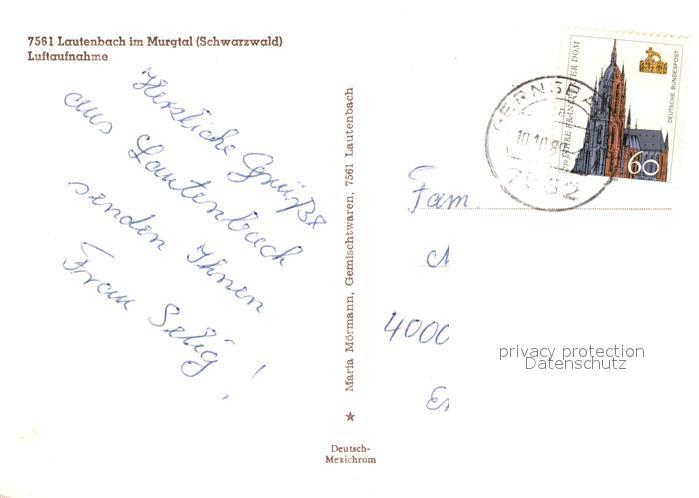 7561 Lautenbach im Murgtal (Schwarzwald)
Luftaufnahme
Herzliche Grüße
aus Lautenbach
senden Ihnen
Frau Selig!
Maria Mörmann, Gemischtwaren, 7561 Lautenbach
Deutsch-
Mexichrom
DEUTSCHE BUNDESPOST
60
GERNSBA
10.10.89
7562
Fam.
4000
privacy protection
Datenschutz